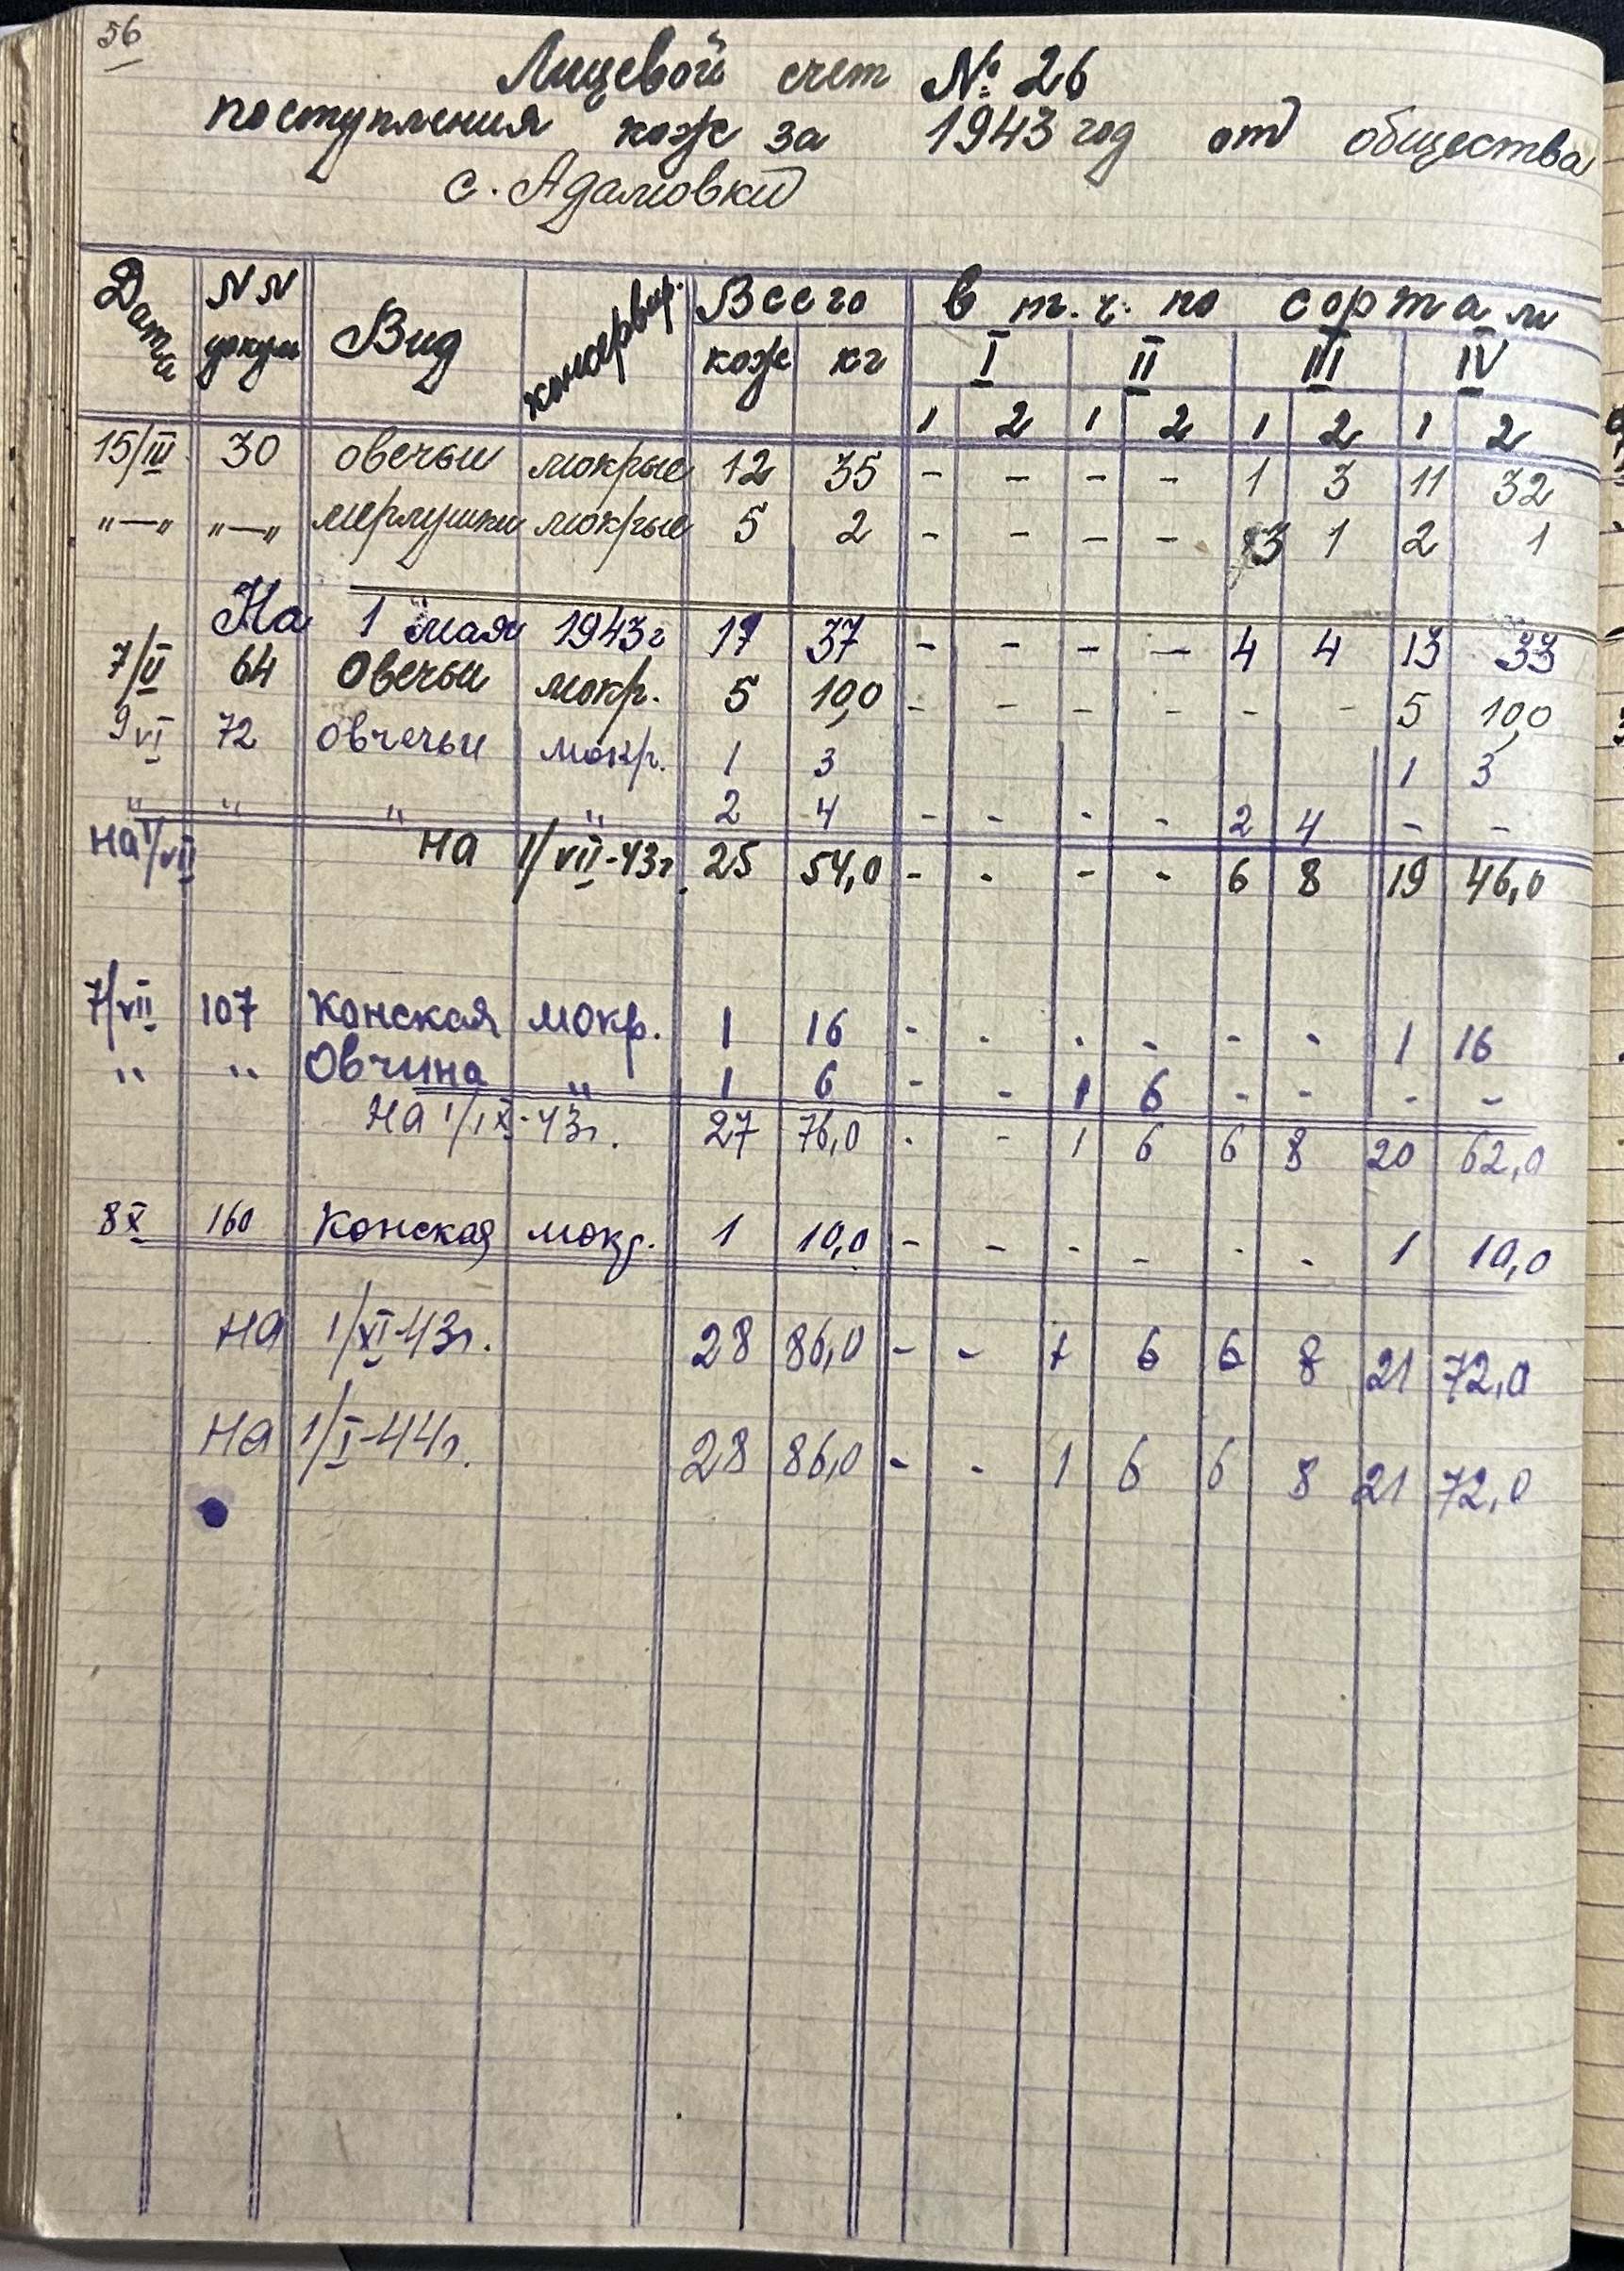 56
Лицевой счет № 26
поступления кож за 1943 год от общества
с. Адамовки
Дата NN докум Вид консервир. Всего в т.ч. по сортам
кож кг I II III IV
1 2 1 2 1 2 1 2
15/IV 30 овечьи мокрые 12 35 - - - - 1 3 11 32
"—" "—" мерлушки мокрые 5 2 - - - - 3 1 2 1
На 1 мая 1943г 17 37 - - - - 4 4 13 33
7/ 64 Овечьи мокр. 5 10,0 - - - - - - 5 10,0
9 VI 72 овчечьи мокр. 1 3 1 3
" " " " 2 4 - - - - 2 4 - -
на 1/VII на 1/VII-43г. 25 54,0 - - - - 6 8 19 46,0
7/VII 107 Конская мокр. 1 16 - - - - - - 1 16
" " Овчина " 1 6 - - 1 6 - - - -
на 1/IX-43г. 27 76,0 - - 1 6 6 8 20 62,0
8 X 160 Конская мокр. 1 10,0 - - - - - - 1 10,0
на 1/XI-43г. 28 86,0 - - 1 6 6 8 21 72,0
на 1/I-44г. 28 86,0 - - 1 6 6 8 21 72,0